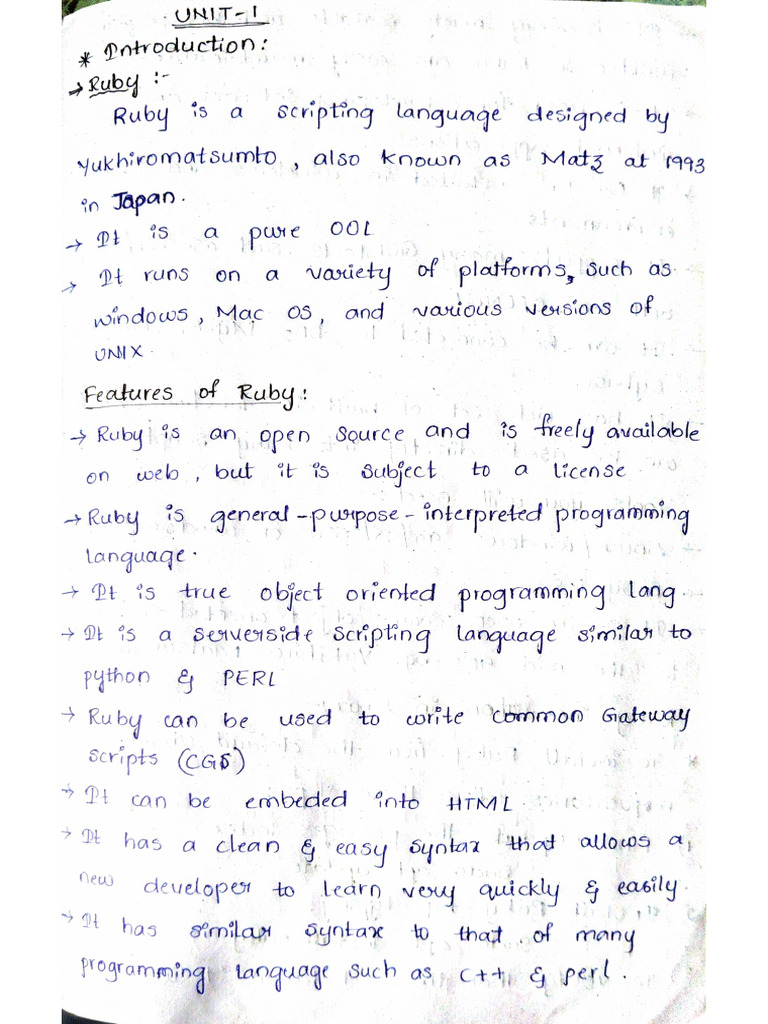 UNIT-1
* Introduction:
→ Ruby :-
Ruby is a scripting language designed by
Yukhiromatsumto, also known as Matz at 1993
in Japan.
→ It is a pure OOL
→ It runs on a variety of platforms, such as
windows, Mac OS, and various versions of
UNIX.
Features of Ruby:
→ Ruby is an open source and is freely available
on web, but it is subject to a license
→ Ruby is general-purpose-interpreted programming
language.
→ It is true object oriented programming lang.
→ It is a serverside scripting language similar to
python & PERL
→ Ruby can be used to write common Gateway
scripts (CGS)
→ It can be embeded into HTML
→ It has a clean & easy syntax that allows a
new developer to learn very quickly & easily.
→ It has similar syntax to that of many
programming language such as C++ & perl.